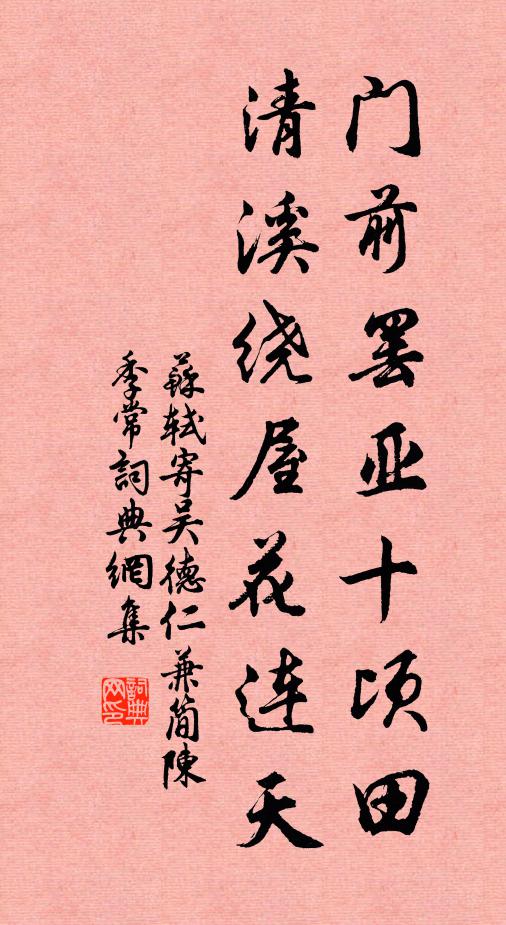 门前罢亚十顷田
清溪绕屋花连天
蘇轼寄吴德仁兼简陳
季常詞典網集
詞典网印